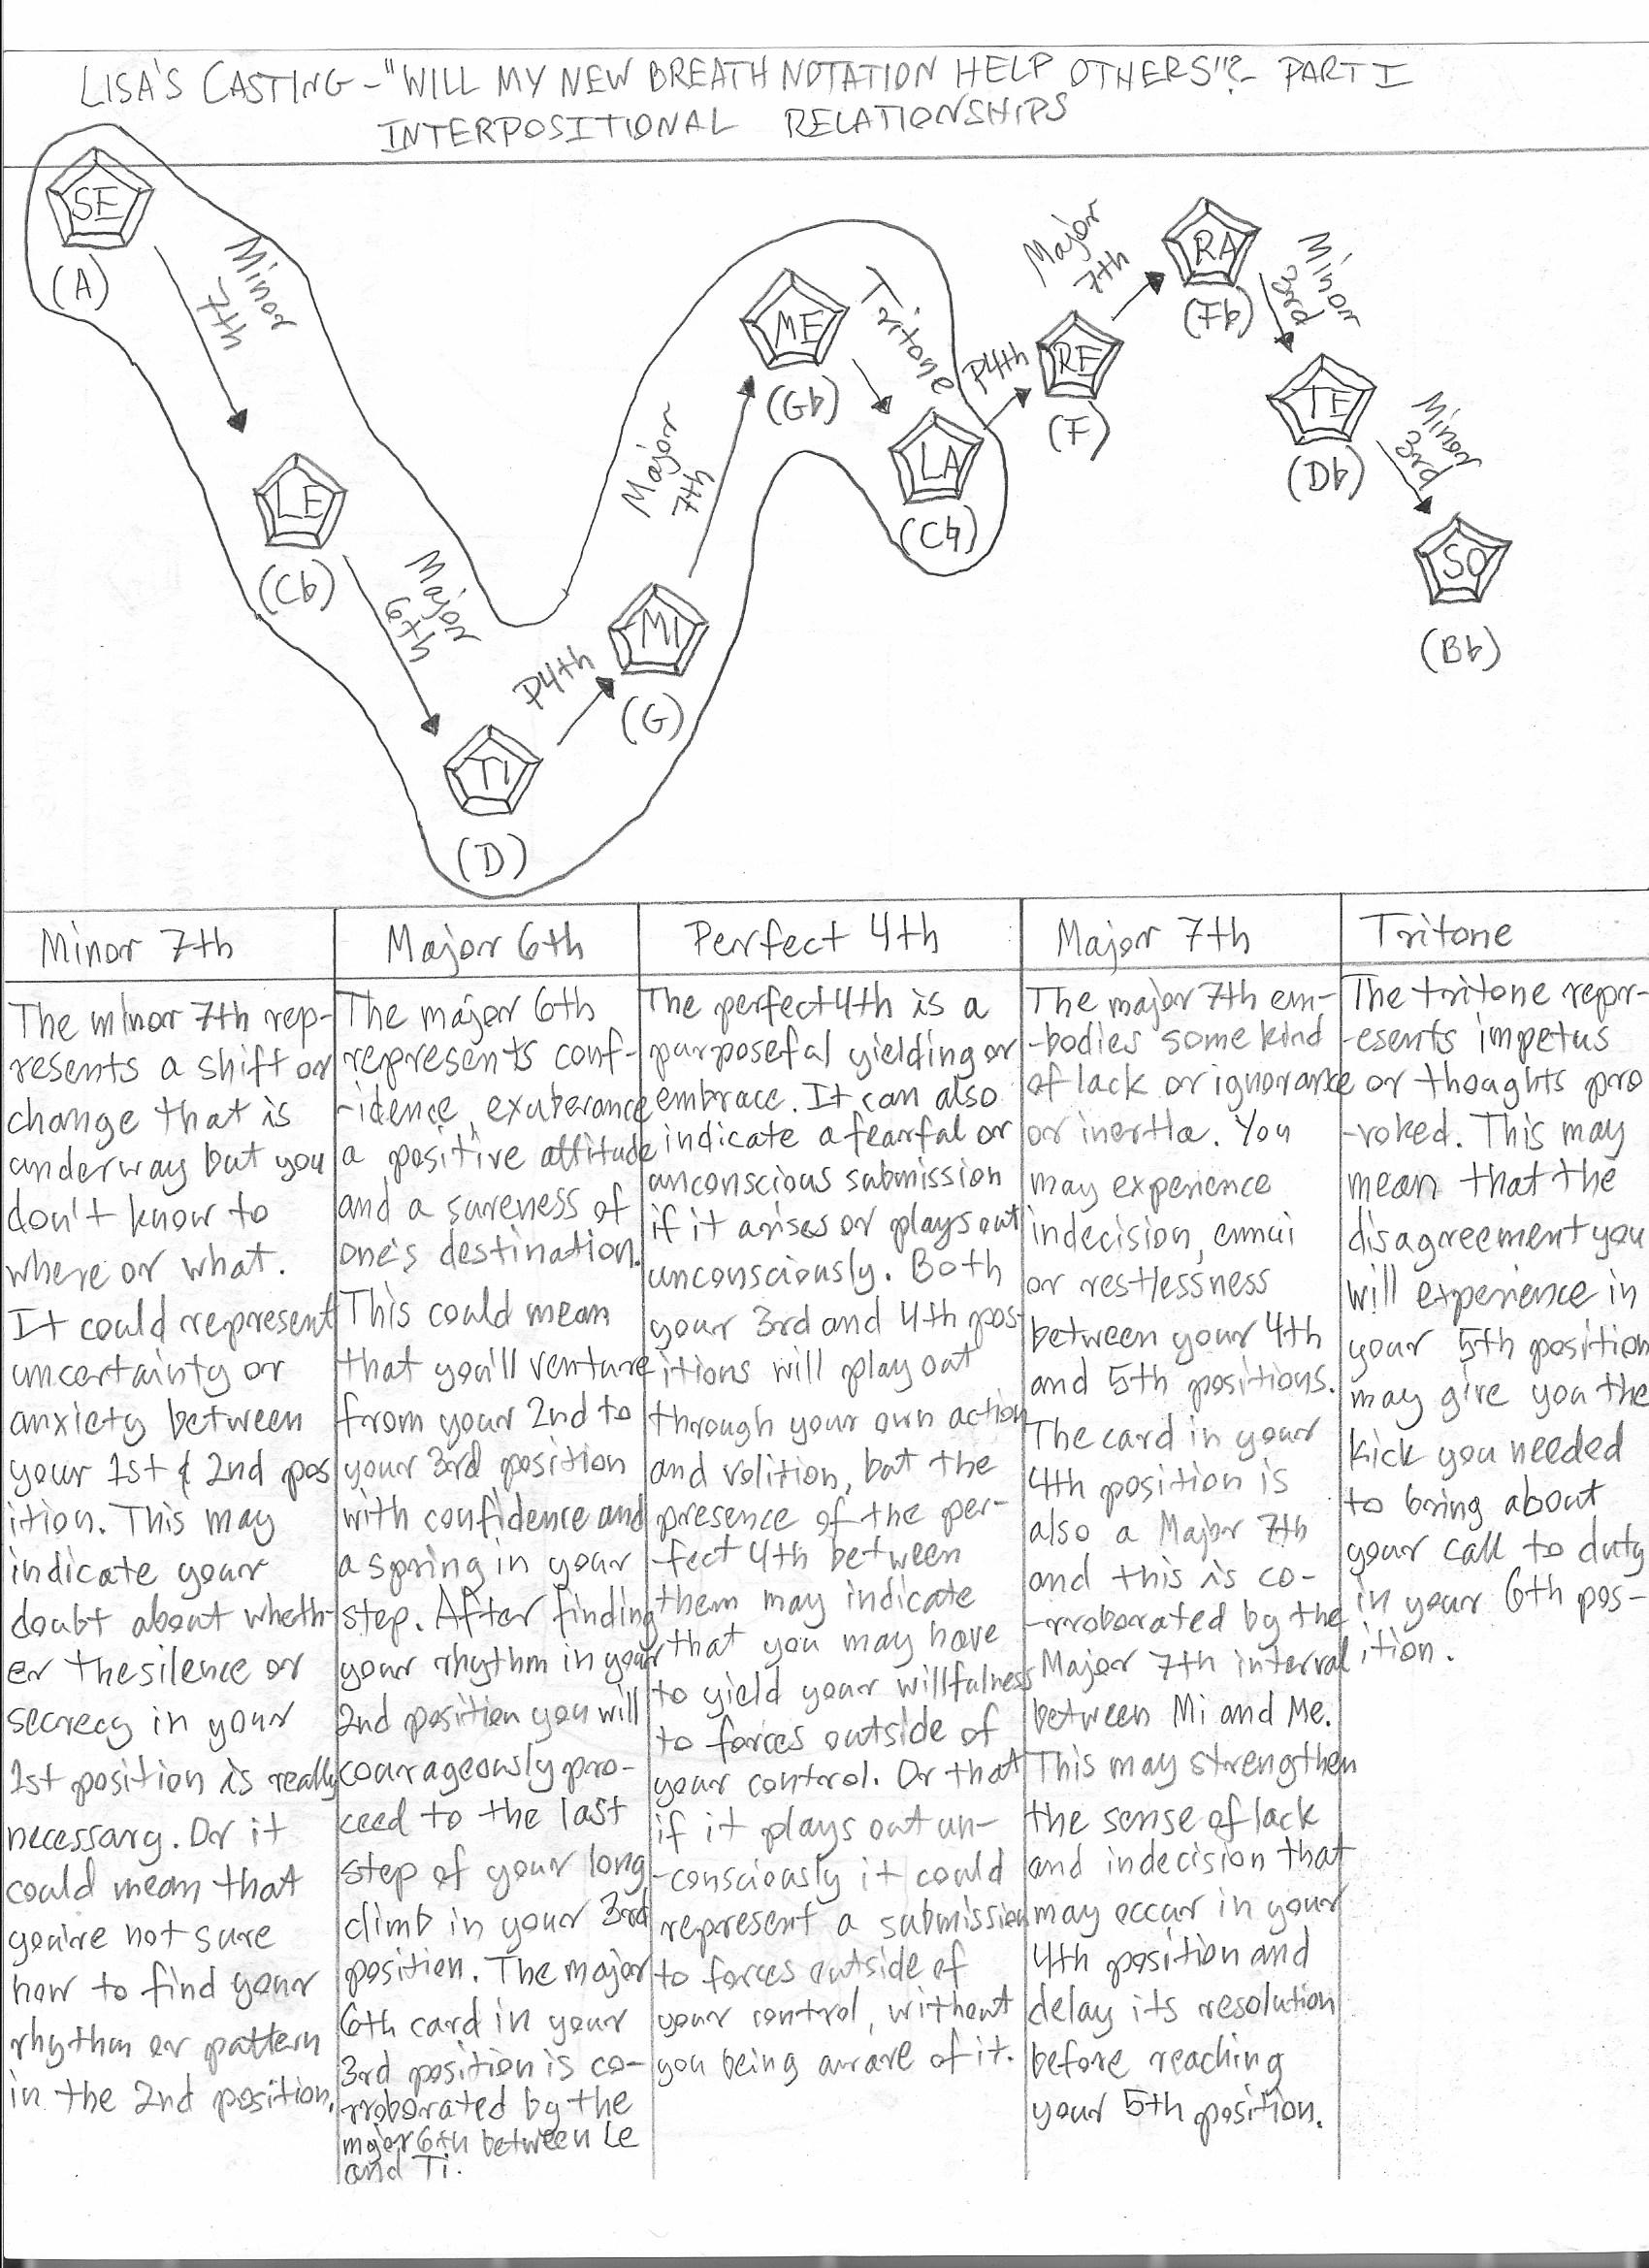 LISA'S CASTING - "WILL MY NEW BREATH NOTATION HELP OTHERS"?- PART I
INTERPOSITIONAL RELATIONSHIPS
SE
(A)
Minor
7th
LE
(Cb)
Major
6th
TI
(D)
P4th
MI
(G)
Major
7th
ME
(Gb)
Tritone
LA
(C♮)
P4th
RE
(F)
Major
7th
RA
(Fb)
Minor
3rd
TE
(Db)
Minor
3rd
SO
(Bb)
Minor 7th
The minor 7th rep-
resents a shift or
change that is
underway but you
don't know to
where or what.
It could represent
uncertainty or
anxiety between
your 1st & 2nd pos
ition. This may
indicate your
doubt about wheth-
er the silence or
secrecy in your
1st position is really
necessary. Or it
could mean that
you're not sure
how to find your
rhythm or pattern
in the 2nd position.
Major 6th
The major 6th
represents conf-
-idence, exuberance
a positive attitude
and a sureness of
one's destination.
This could mean
that you'll venture
from your 2nd to
your 3rd position
with confidence and
a spring in your
step. After finding
your rhythm in your
2nd position you will
courageously pro-
ceed to the last
step of your long
climb in your 3rd
position. The major
6th card in your
3rd position is co-
rroborated by the
major 6th between Le
and Ti.
Perfect 4th
The perfect 4th is a
purposeful yielding or
embrace. It can also
indicate a fearful or
unconscious submission
if it arises or plays out
unconsciously. Both
your 3rd and 4th pos-
itions will play out
through your own action
and volition, but the
presence of the per-
-fect 4th between
them may indicate
that you may have
to yield your willfulness
to forces outside of
your control. Or that
if it plays out un-
-consciously it could
represent a submission
to forces outside of
your control, without
you being aware of it.
Major 7th
The major 7th em-
-bodies some kind
of lack or ignorance
or inertia. You
may experience
indecision, ennui
or restlessness
between your 4th
and 5th positions.
The card in your
4th position is
also a Major 7th
and this is co-
-rroborated by the
Major 7th interval
between Mi and Me.
This may strengthen
the sense of lack
and indecision that
may occur in your
4th position and
delay its resolution
before reaching
your 5th position.
Tritone
The tritone repr-
-esents impetus
or thoughts pro
-voked. This may
mean that the
disagreement you
will experience in
your 5th position
may give you the
kick you needed
to bring about
your call to duty
in your 6th pos-
ition.